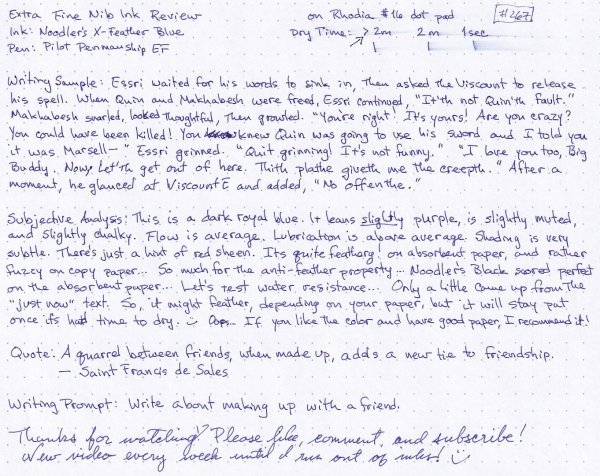 Extra Fine Nib Ink Review on Rhodia #16 dot pad #267
Ink: Noodler's X-Feather Blue Dry Time: >2m 2m 1sec
Pen: Pilot Penmanship EF
Writing Sample: Essri waited for his words to sink in, then asked the Viscount to release
his spell. When Quin and Makhabesh were freed, Essri continued, "It'th not Quin'th fault."
Makhabesh snarled, looked thoughtful, then growled. "You're right! It's yours! Are you crazy?
You could have been killed! You knew Quin was going to use his sword and I told you
it was Marsell—" Essri grinned. "Quit grinning! It's not funny." "I love you too, Big
Buddy. Now, Let'th get out of here. Thith plathe giveth me the creepth." After a
moment, he glanced at Viscount E and added, "No offenthe."
Subjective Analysis: This is a dark royal blue. It leans slightly purple, is slightly muted,
and slightly chalky. Flow is average. Lubrication is above average. Shading is very
subtle. There's just a hint of red sheen. Its quite feathery! on absorbent paper, and rather
fuzzy on copy paper... So much for the anti-feather property... Noodler's Black scored perfect
on the absorbent paper... Let's test water resistance... Only a little came up from the
"just now" text. So, it might feather, depending on your paper, but it will stay put
once its had time to dry. :) Oops... If you like the color and have good paper, I recommend it!
Quote: A quarrel between friends, when made up, adds a new tie to friendship.
— Saint Francis de Sales
Writing Prompt: Write about making up with a friend.
Thanks for watching! Please like, comment, and subscribe!
New video every week until I run out of inks! :)